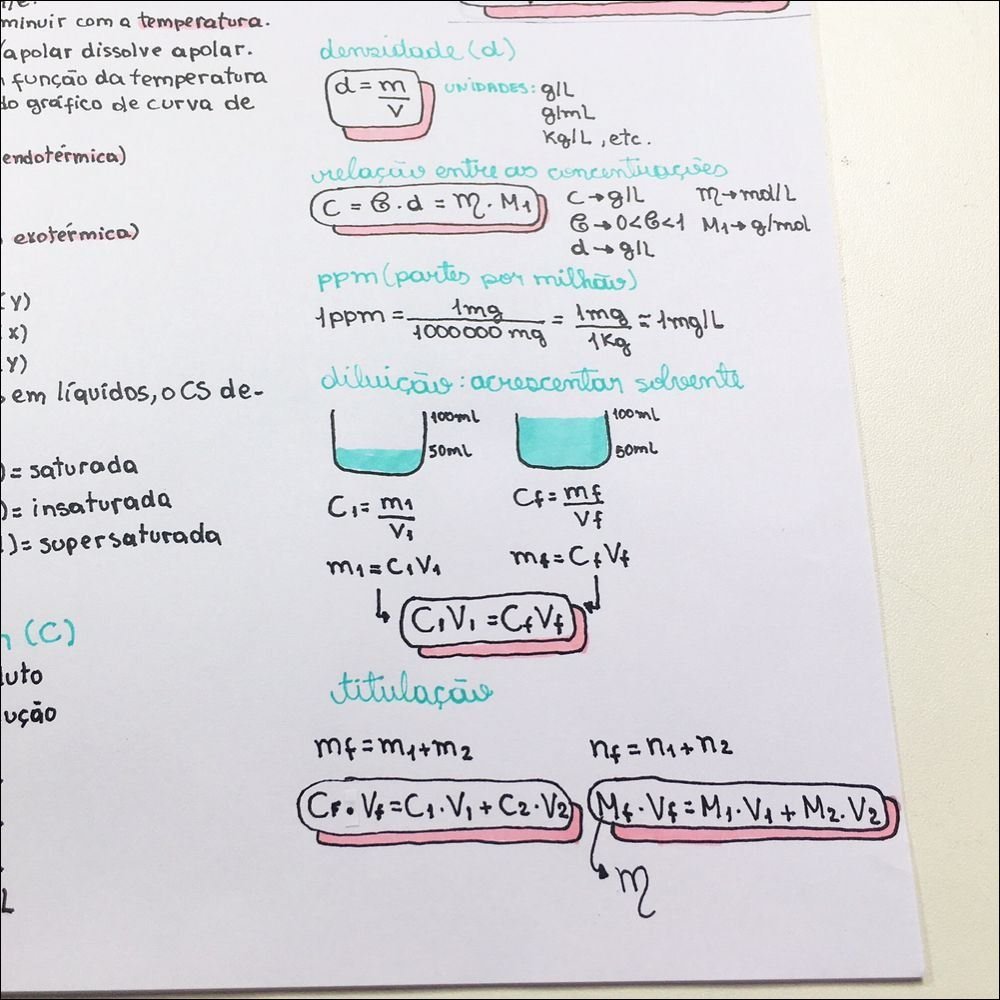 minuir com a temperatura.
apolar dissolve apolar.
função da temperatura
do gráfico de curva de
endotérmica)
exotérmica)
(y)
x)
y)
em líquidos, o CS de-
)= saturada
)= insaturada
)= supersaturada
(C)
luto
ução
L
densidade (d)
d = m/V UNIDADES: g/L
g/mL
Kg/L, etc.
relação entre as concentrações
C = ℭ.d = ɱ.M₁ C→g/L ɱ→mol/L
ℭ→0<ℭ<1 M₁→g/mol
d→g/L
ppm (partes por milhão)
1ppm = 1mg/1000000 mg = 1mg/1Kg ≅ 1mg/L
diluição: acrescentar solvente
100mL 100mL
50mL 50mL
C₁ = m₁/V₁ Cf = mf/Vf
m₁ = C₁V₁ mf = CfVf
C₁V₁ = CfVf
titulação
mf = m₁+m₂ nf = n₁+n₂
CF.Vf = C₁.V₁ + C₂.V₂ Mf.Vf = M₁.V₁ + M₂.V₂
ɱ